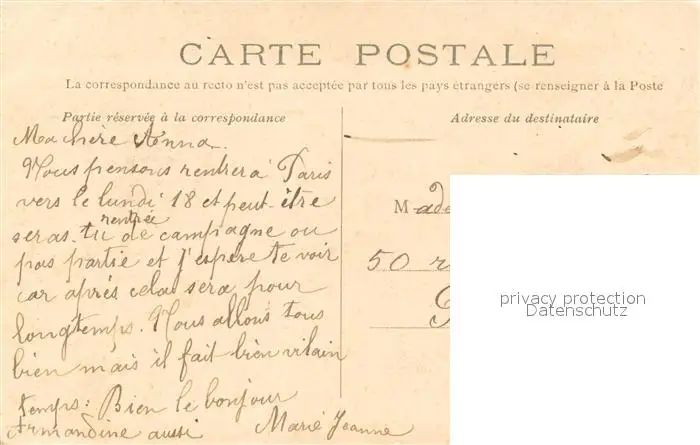 CARTE POSTALE
La correspondance au recto n'est pas acceptée par tous les pays étrangers (se renseigner à la Poste
Partie réservée à la correspondance
Adresse du destinataire
Ma chère Anna.
Nous pensons rentrer à Paris
vers le lundi 18 et peut-être
rentrée
seras-tu de campagne ou
pas partie et j'espere te voir
car après cela sera pour
longtemps. Nous allons tous
bien mais il fait bien vilain
temps: Bien le bonjour
Armandine aussi Marie Jeanne
Made
50 r
privacy protection
Datenschutz